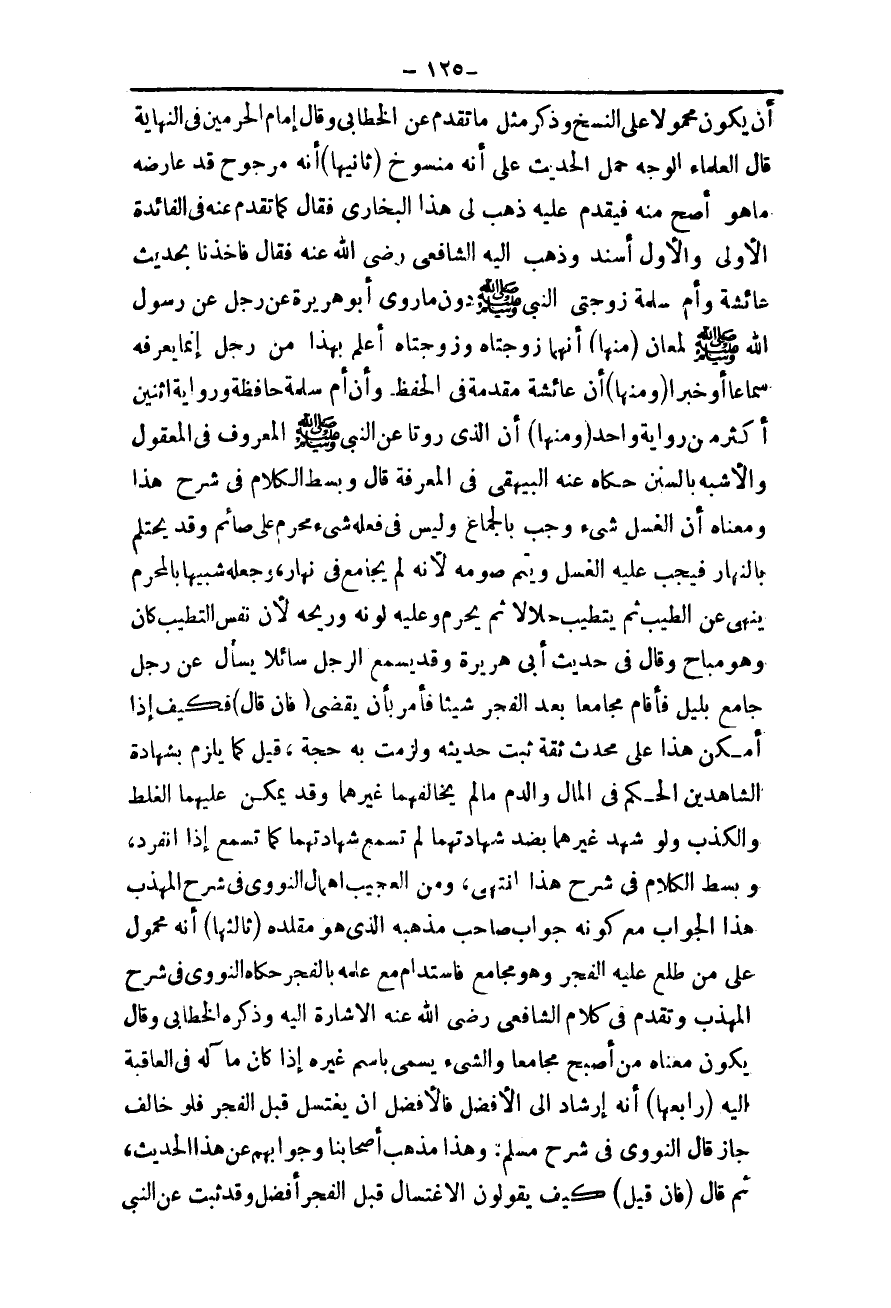 -١٢٥-
أن يكون محمولا على النسخ وذكر مثل ما تقدم عن الخطابى وقال إمام الحرمين فى النهاية
قال العلماء الوجه حمل الحديث على أنه منسوخ (ثانيها) أنه مرجوح قد عارضه
ماهو أصح منه فيقدم عليه ذهب لى هذا البخارى فقال كما تقدم عنه فى الفائدة
الأولى والأول أسند وذهب اليه الشافعى رضى الله عنه فقال فاخذنا بحديث
عائشة وأم سلمة زوجتى النبى ﷺ دون ماروى أبو هريرة عن رجل عن رسول
الله ﷺ لمعان (منها) أنهما زوجتاه وزوجتاه أعلم بهذا من رجل إنما يعرفه
سماعا أو خبرا (ومنها) أن عائشة مقدمة فى الحفظ وأن أم سلمة حافظة ورواية اثنين
أكثر من رواية واحد (ومنها) أن الذى روتا عن النبى ﷺ المعروف فى المعقول
والأشبه بالسنن حكاه عنه البيهقى فى المعرفة قال وبسط الكلام فى شرح هذا
ومعناه أن الغسل شىء وجب بالجماع وليس فى فعله شىء محرم على صائم وقد يحتلم
بالنهار فيجب عليه الغسل ويتم صومه لأنه لم يجامع فى نهار، وجعله شبيها بالمحرم
ينهى عن الطيب ثم يتطيب حلالا ثم يحرم وعليه لونه وريحه لأن نفس التطيب كان
وهو مباح وقال فى حديث أبى هريرة وقد يسمع الرجل سائلا يسأل عن رجل
جامع بليل فأقام مجامعا بعد الفجر شيئا فأمر بأن يقضى (فان قال) فكيف إذا
أمكن هذا على محدث ثقة ثبت حديثه ولزمت به حجة، قيل كما يلزم بشهادة
الشاهدين الحكم فى المال والدم مالم يخالفهما غيرهما وقد يمكن عليهما الغلط
والكذب ولو شهد غيرهما بضد شهادتهما لم تسمع شهادتهما كما تسمع إذا انفرد،
وبسط الكلام فى شرح هذا انتهى، ومن العجيب اهمال النووى فى شرح المهذب
هذا الجواب مع كونه جواب صاحب مذهبه الذى هو مقلده (ثالثها) أنه محمول
على من طلع عليه الفجر وهو مجامع فاستدام مع علمه بالفجر حكاه النووى فى شرح
المهذب وتقدم فى كلام الشافعى رضى الله عنه الاشارة اليه وذكره الخطابى وقال
يكون معناه من أصبح مجامعا والشىء يسمى باسم غيره إذا كان مآله فى العاقبة
اليه (رابعها) أنه إرشاد الى الأفضل فالأفضل ان يغتسل قبل الفجر فلو خالف
جاز قال النووى فى شرح مسلم: وهذا مذهب أصحابنا وجوابهم عن هذا الحديث،
ثم قال (فان قيل) كيف يقولون الاغتسال قبل الفجر أفضل وقد ثبت عن النبى